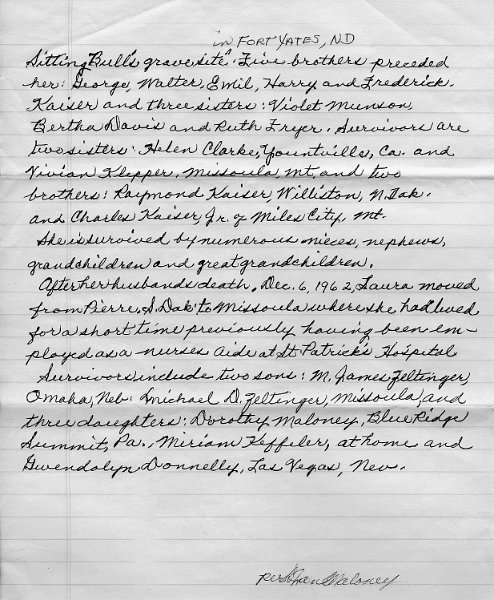 in FORT YATES, ND
Sitting Bull's grave site. Five brothers preceded
her: George, Walter, Emil, Harry and Frederick.
Kaiser and three sisters: Violet Munson,
Bertha Davis and Ruth Fryer. Survivors are
two sisters: Helen Clarke, Yountville, Ca. and
Vivian Klepper, Missoula, Mt. and two
brothers: Raymond Kaiser, Williston, N. Dak.
and Charles Kaiser, Jr. of Miles City, Mt.
She is survived by numerous nieces, nephews,
grandchildren and great grandchildren.
After her husbands death, Dec. 6, 1962, Laura moved
from Pierre, S. Dak to Missoula where she had lived
for a short time previously having been em-
ployed as a nurses aide at St. Patrick's Hospital
Survivors include two sons: M. James Zeltinger,
Omaha, Neb. Michael D. Zeltinger, Missoula, and
three daughters: Dorothy Maloney, Blue Ridge
Summit, Pa., Miriam Keffeler, at home and
Gwendolyn Donnelly, Las Vegas, Nev.
Maloney